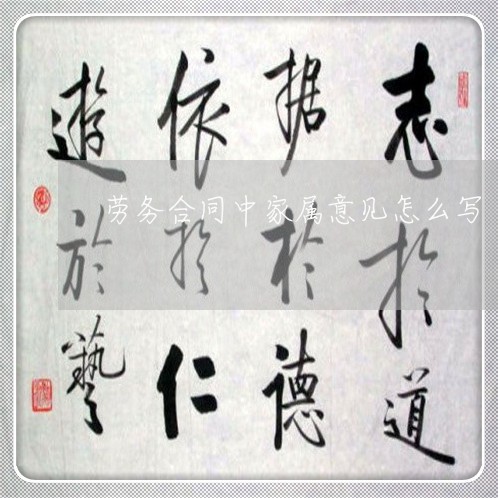 志於道
据於德
依於仁
遊於藝
劳务合同中家属意见怎么写